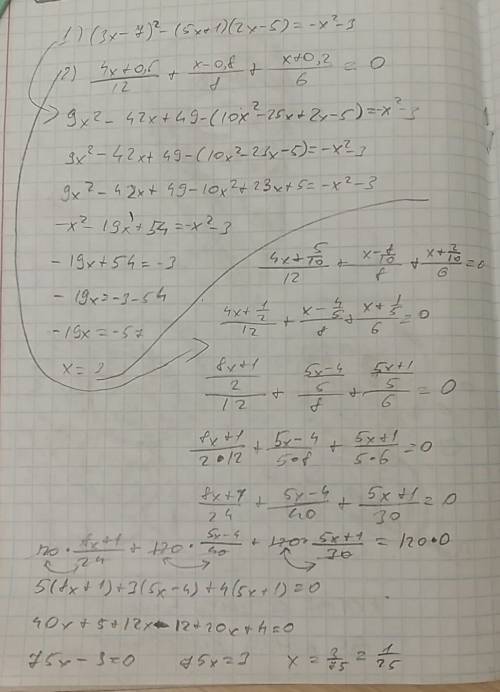 1) (3x-7)²-(5x+1)(2x-5)=-x²-3
2) (4x+0,5)/12 + (x-0,8)/8 + (x+0,2)/6 = 0
9x²-42x+49-(10x²-25x+2x-5)=-x²-3
9x²-42x+49-(10x²-23x-5)=-x²-3
9x²-42x+49-10x²+23x+5=-x²-3
-x²-19x+54=-x²-3
-19x+54=-3
-19x=-3-54
-19x=-57
x=3
(4x+5/10)/12 + (x-8/10)/8 + (x+2/10)/6 = 0
(4x+1/2)/12 + (x-4/5)/8 + (x+1/5)/6 = 0
((8x+1)/2)/12 + ((5x-4)/5)/8 + ((5x+1)/5)/6 = 0
(8x+1)/(2·12) + (5x-4)/(5·8) + (5x+1)/(5·6) = 0
(8x+1)/24 + (5x-4)/40 + (5x+1)/30 = 0
120·(8x+1)/24 + 120·(5x-4)/40 + 120·(5x+1)/30 = 120·0
5(8x+1)+3(5x-4)+4(5x+1)=0
40x+5+12x-12+20x+4=0
75x-3=0 75x=3 x=3/75=1/25